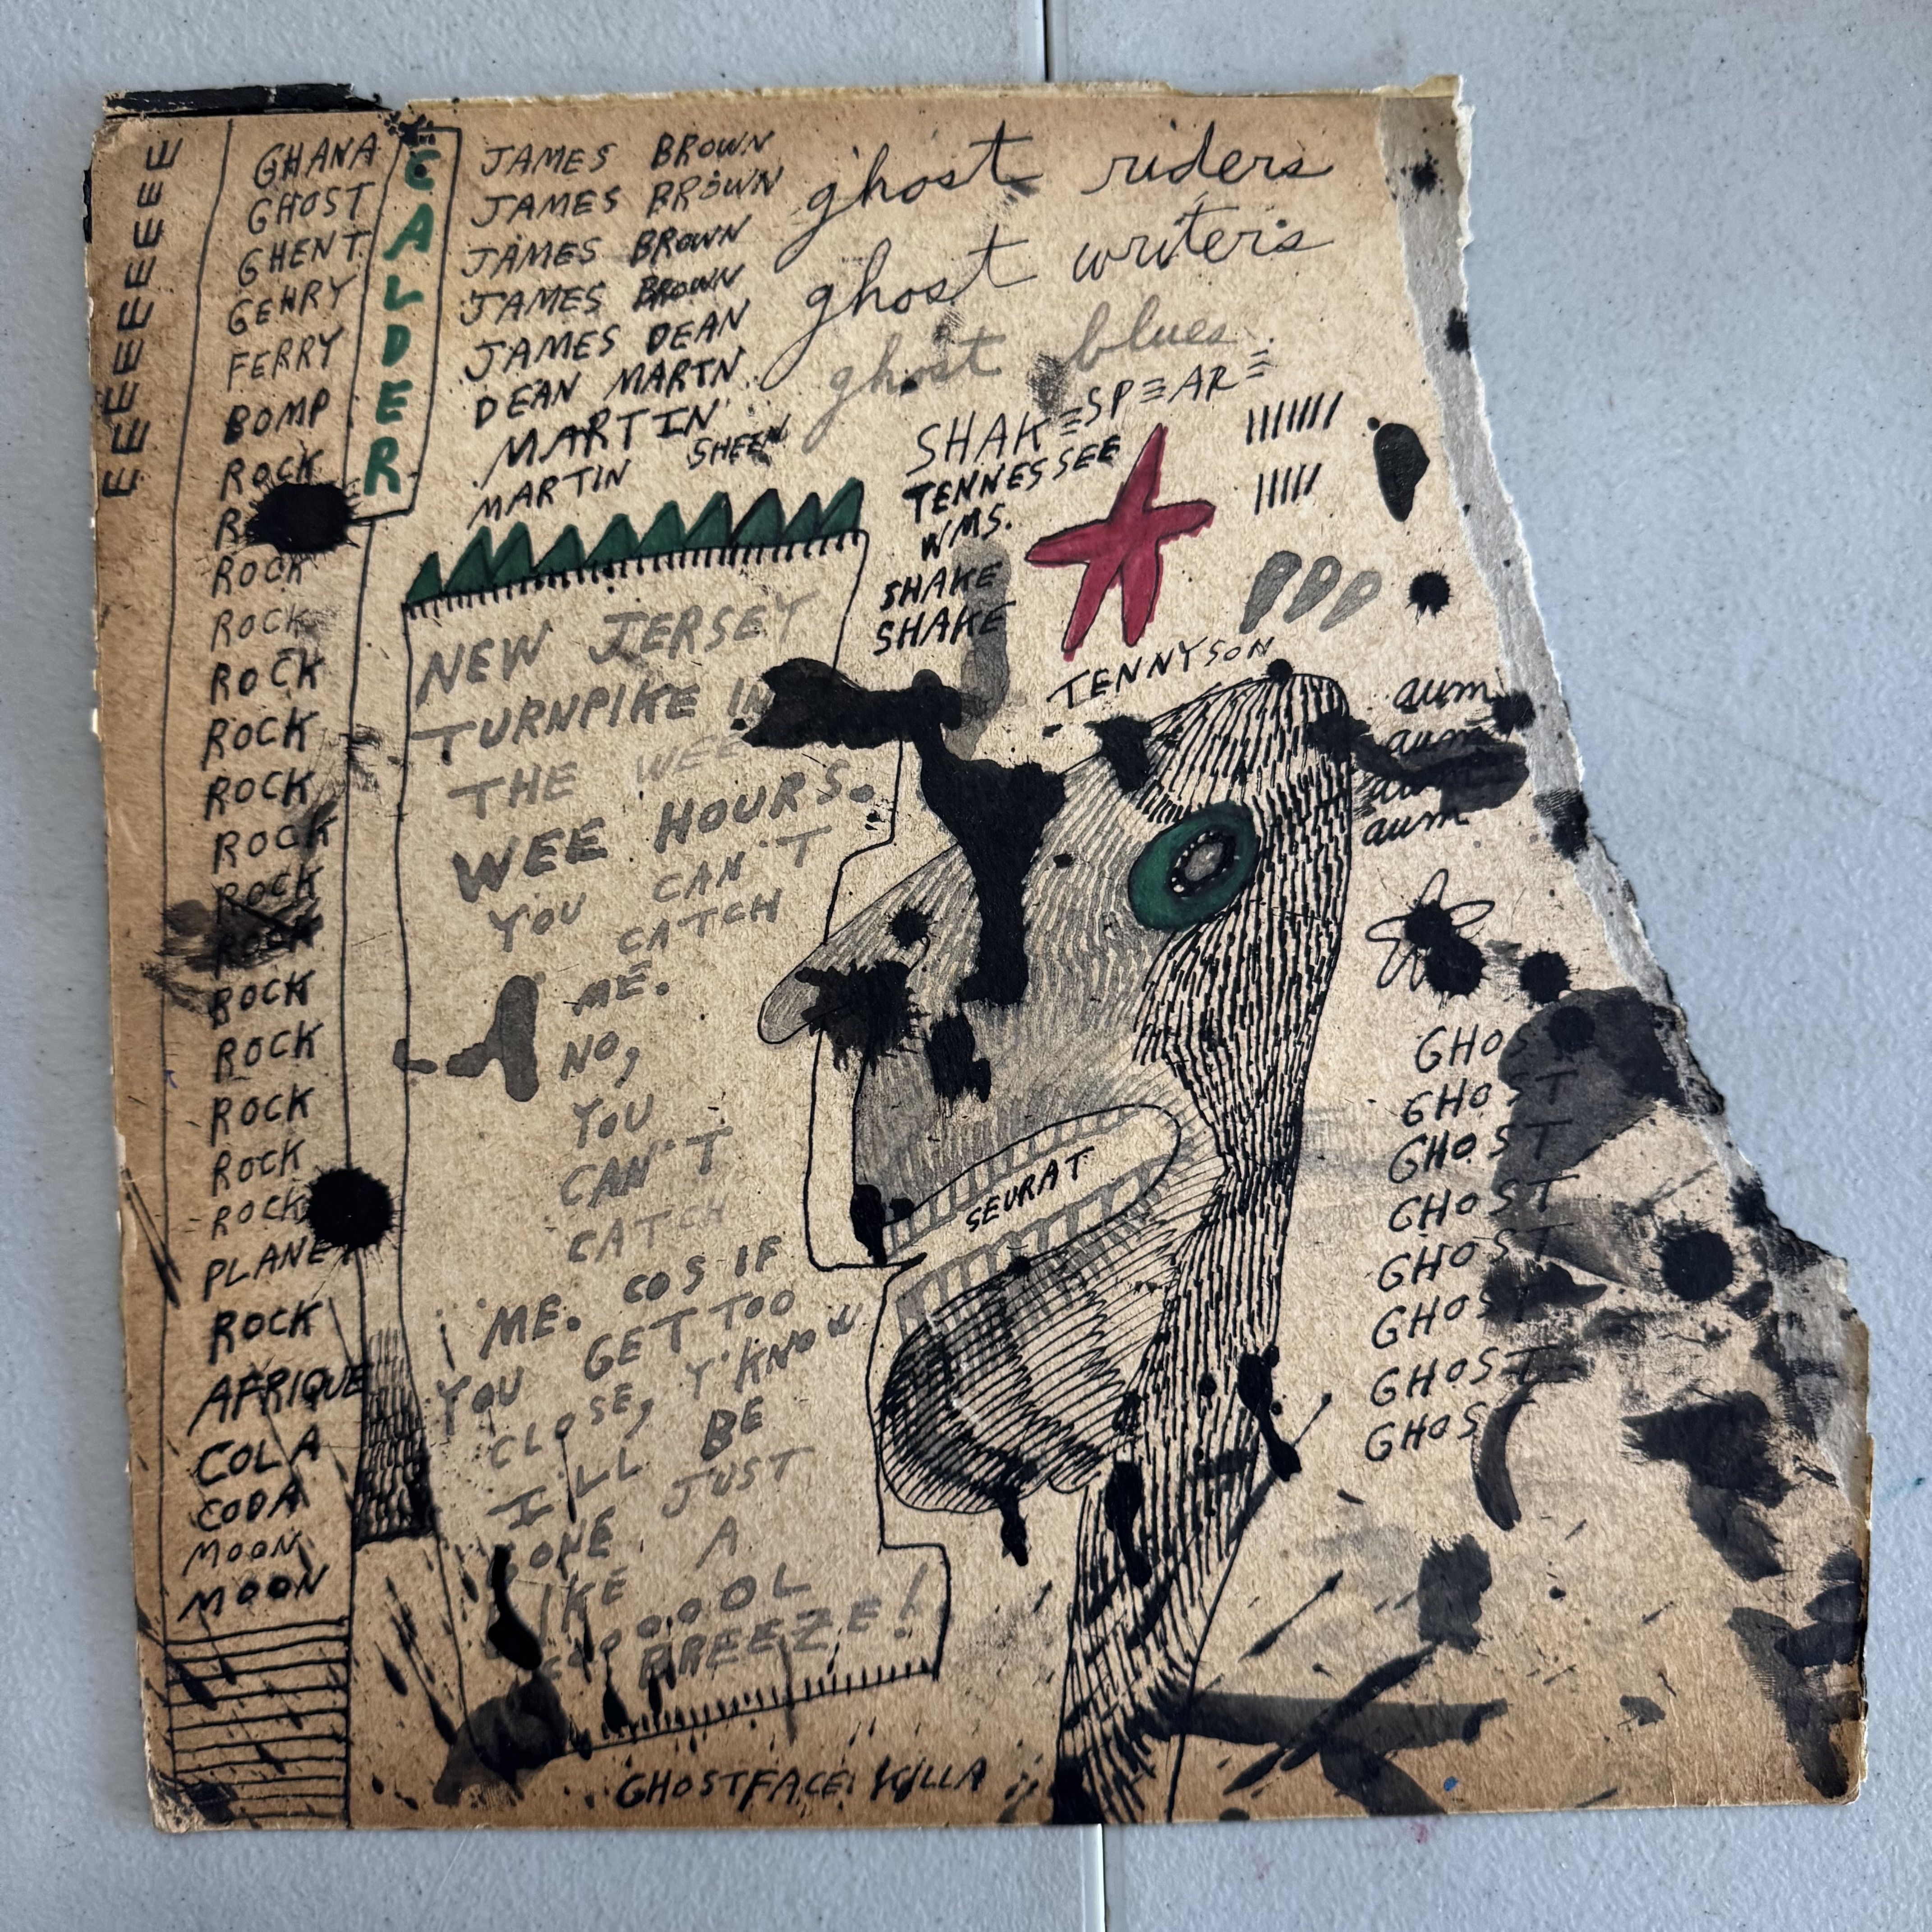 E E E E E E E E E
GHANA
GHOST
GHENT
GEHRY
FERRY
BOMP
ROCK
R
ROCK
ROCK
ROCK
ROCK
ROCK
ROCK
ROCK
ROCK
ROCK
ROCK
ROCK
ROCK
ROCK
PLANET
ROCK
AFRIQUE
COLA
CODA
MOON
MOON
CALDER
JAMES BROWN
JAMES BROWN
JAMES BROWN
JAMES BROWN
JAMES DEAN
DEAN MARTN
MARTIN
MARTIN SHEEN
ghost riders
ghost writers
ghost blues
SHAKESPEARE
TENNESSEE
WMS.
SHAKE
SHAKE
TENNYSON
NEW JERSEY
TURNPIKE IN
THE WEE
WEE HOURS.
YOU CAN'T
CATCH
ME.
NO,
YOU
CAN'T
CATCH
ME. COS IF
YOU GET TOO
CLOSE, Y'KNOW
I'LL BE
GONE JUST
LIKE A
COOOOOL
BREEZE!
SEURAT
aum
aum
aum
aum
GHOST
GHOST
GHOST
GHOST
GHOST
GHOST
GHOST
GHOST
GHOSTFACE KILLA